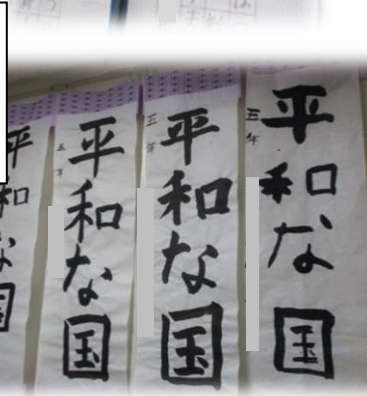 平和な国
五年
平和な国
五年
平和な国
五年
平和な国